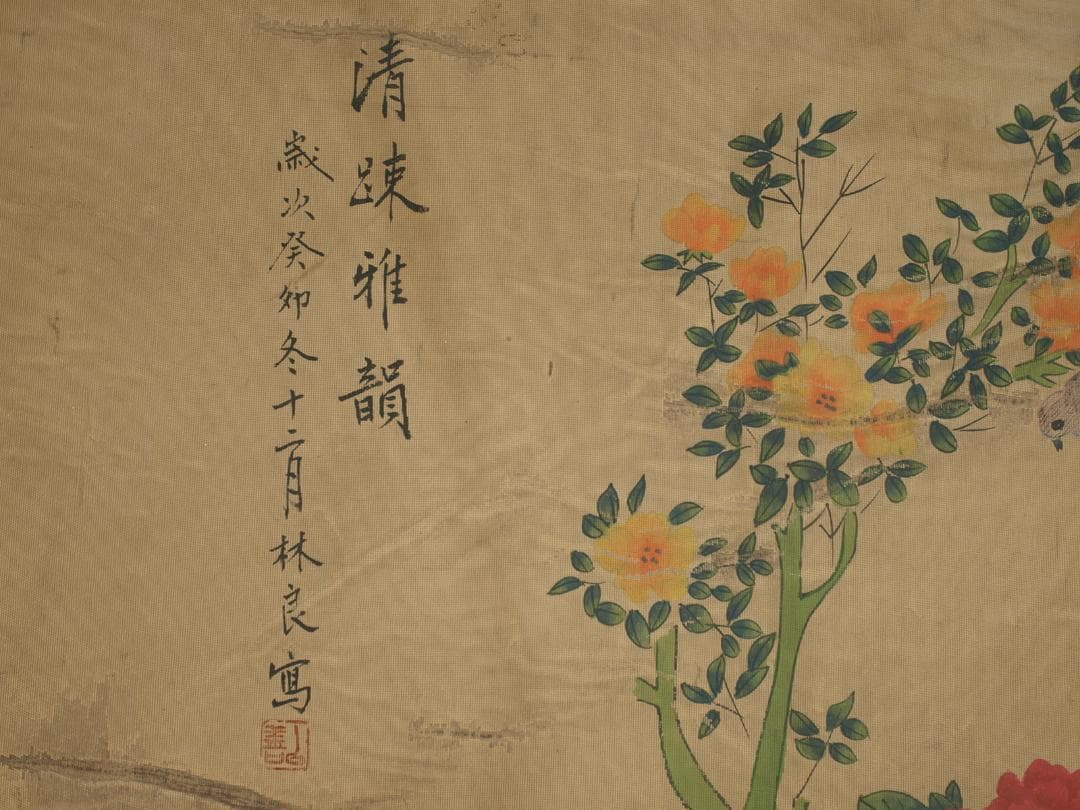 清踈雅韻
歲次癸卯冬十二月林良寫